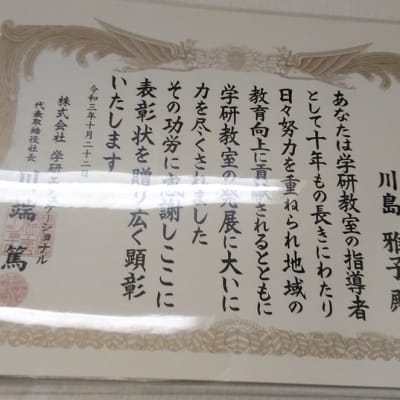 川島 雅子 殿
あなたは学研教室の指導者
として十年もの長きにわたり
日々努力を重ねられ地域の
教育向上に貢献されるとともに
学研教室の発展に大いに
力を尽くされました
その功労に感謝しここに
表彰状を贈り広く顕彰
いたします
令和三年十月二十二日
株式会社 学研エデュケーショナル
代表取締役社長 川端 篤